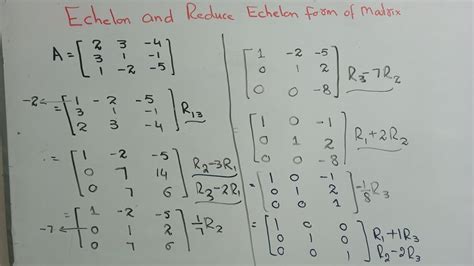 Echelon and Reduce Echelon form of Matrix
A = [ 2 3 -4
3 1 -1
1 -2 -5 ]
-2 ← = [ 1 -2 -5
3 1 -1
2 3 -4 ] R13
= [ 1 -2 -5
0 7 14
0 7 6 ] R2-3R1
R3-2R1
-7 ← = [ 1 -2 -5
0 1 2
0 7 6 ] 1/7 R2
[ 1 -2 -5
0 1 2
0 0 -8 ] R3-7R2
[ 1 0 -1
0 1 2
0 0 -8 ] R1+2R2
= [ 1 0 -1
0 1 2
0 0 1 ] -1/8 R3
= [ 1 0 0
0 1 0
0 0 1 ] R1+1R3
R2-2R3